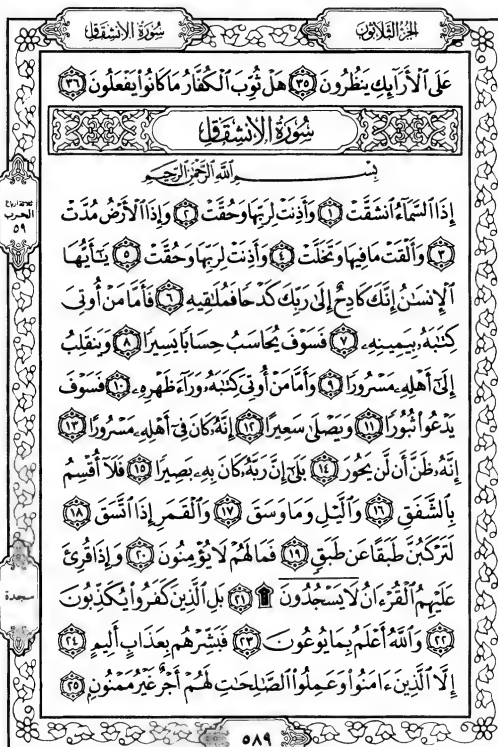 الجزء الثلاثون
سورة الانشقاق
على الأرائك ينظرون ٣٥ هل ثوب الكفار ما كانوا يفعلون ٣٦
سورة الانشقاق
بسم الله الرحمن الرحيم
إِذَا ٱلسَّمَآءُ ٱنشَقَّتْ ١ وَأَذِنَتْ لِرَبِّهَا وَحُقَّتْ ٢ وَإِذَا ٱلْأَرْضُ مُدَّتْ
٣ وَأَلْقَتْ مَا فِيهَا وَتَخَلَّتْ ٤ وَأَذِنَتْ لِرَبِّهَا وَحُقَّتْ ٥ يَٰٓأَيُّهَا
ٱلْإِنسَٰنُ إِنَّكَ كَادِحٌ إِلَىٰ رَبِّكَ كَدْحًا فَمُلَٰقِيهِ ٦ فَأَمَّا مَنْ أُوتِىَ
كِتَٰبَهُۥ بِيَمِينِهِۦ ٧ فَسَوْفَ يُحَاسَبُ حِسَابًا يَسِيرًا ٨ وَيَنقَلِبُ
إِلَىٰٓ أَهْلِهِۦ مَسْرُورًا ٩ وَأَمَّا مَنْ أُوتِىَ كِتَٰبَهُۥ وَرَآءَ ظَهْرِهِۦ ١٠ فَسَوْفَ
يَدْعُوا۟ ثُبُورًا ١١ وَيَصْلَىٰ سَعِيرًا ١٢ إِنَّهُۥ كَانَ فِىٓ أَهْلِهِۦ مَسْرُورًا ١٣
إِنَّهُۥ ظَنَّ أَن لَّن يَحُورَ ١٤ بَلَىٰٓ إِنَّ رَبَّهُۥ كَانَ بِهِۦ بَصِيرًا ١٥ فَلَآ أُقْسِمُ
بِٱلشَّفَقِ ١٦ وَٱلَّيْلِ وَمَا وَسَقَ ١٧ وَٱلْقَمَرِ إِذَا ٱتَّسَقَ ١٨
لَتَرْكَبُنَّ طَبَقًا عَن طَبَقٍ ١٩ فَمَا لَهُمْ لَا يُؤْمِنُونَ ٢٠ وَإِذَا قُرِئَ
عَلَيْهِمُ ٱلْقُرْءَانُ لَا يَسْجُدُونَ ۩ ٢١ بَلِ ٱلَّذِينَ كَفَرُوا۟ يُكَذِّبُونَ
٢٢ وَٱللَّهُ أَعْلَمُ بِمَا يُوعُونَ ٢٣ فَبَشِّرْهُم بِعَذَابٍ أَلِيمٍ ٢٤
إِلَّا ٱلَّذِينَ ءَامَنُوا۟ وَعَمِلُوا۟ ٱلصَّٰلِحَٰتِ لَهُمْ أَجْرٌ غَيْرُ مَمْنُونٍ ٢٥
ثلاثة أرباع
الحزب
٥٩
سجدة
٥٨٩